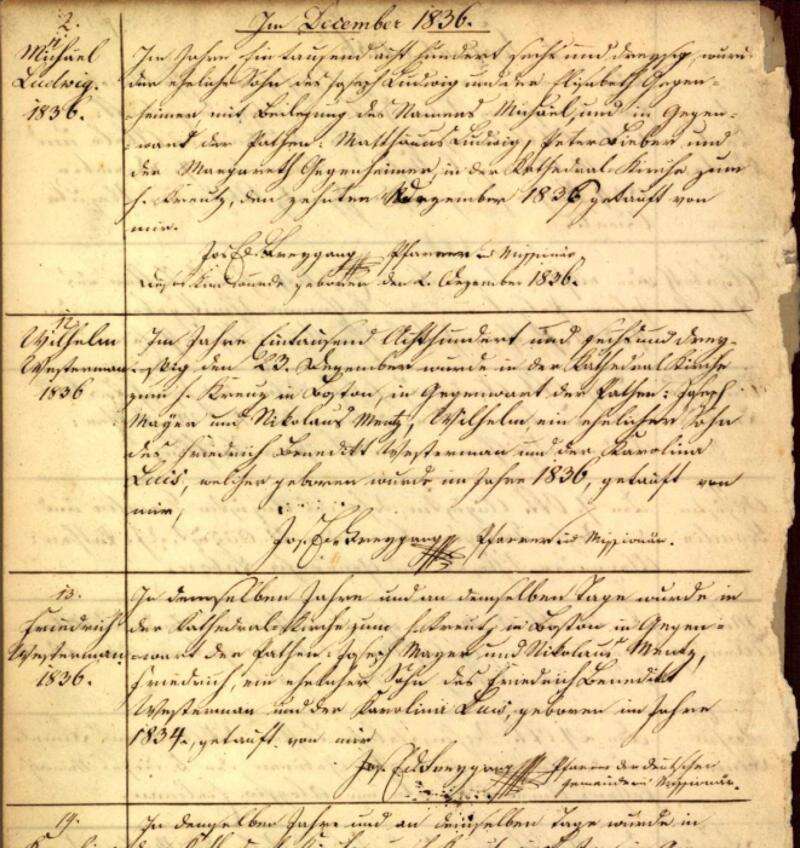 2.
Im December 1836.
11
Michael
Ludwig.
1836.
Im Jahre Eintausend acht hundert sechs und dreysig, wurde
der eheliche Sohn des Joseph Ludwig und der Elisabeth Gegen-
heimer mit Beilegung des Namens Michael, und in Gegen-
wart der Pathen: Matthäus Ludwig, Peter Bieber und
der Margareth Gegenheimer, in der Kathedral-Kirche zum
h. Kreutz, den zehnten Dezember 1836 getauft von
mir.
Jos. Ed. Freygang Pfarrer u. Missionär
Dieses Kind wurde geboren den 2. Dezember 1836.
12.
Wilhelm
Westerman
1836
Im Jahre Eintausend Achthundert und sechs und drey-
ßig den 23. Dezember wurde in der Kathedral Kirche
zum h. Kreuz in Boston, in Gegenwart der Pathen: Joseph
Mayer und Nikolaus Mentz, Wilhelm, ein ehelicher Sohn
des Friedrich Benedikt Westerman und der Karolina
Luis, welcher geboren wurde im Jahre 1836, getauft von
mir,
Jos. Ed. Freygang Pfarrer u. Missionär.
13.
Friedrich
Westerman.
1836.
In demselben Jahre und an demselben Tage wurde in
der Kathedral-Kirche zum h. Kreutz in Boston in Gegen-
wart der Pathen: Joseph Mayer und Nikolaus Mentz,
Friedrich, ein ehelicher Sohn des Friedrich Benedikt
Westerman und der Karolina Luis, geboren im Jahre
1834., getauft von mir
Jos. Ed. Freygang Pfarrer der deutschen
Gemeinde u. Missionär.
14.
In demselben Jahre und an demselben Tage wurde in